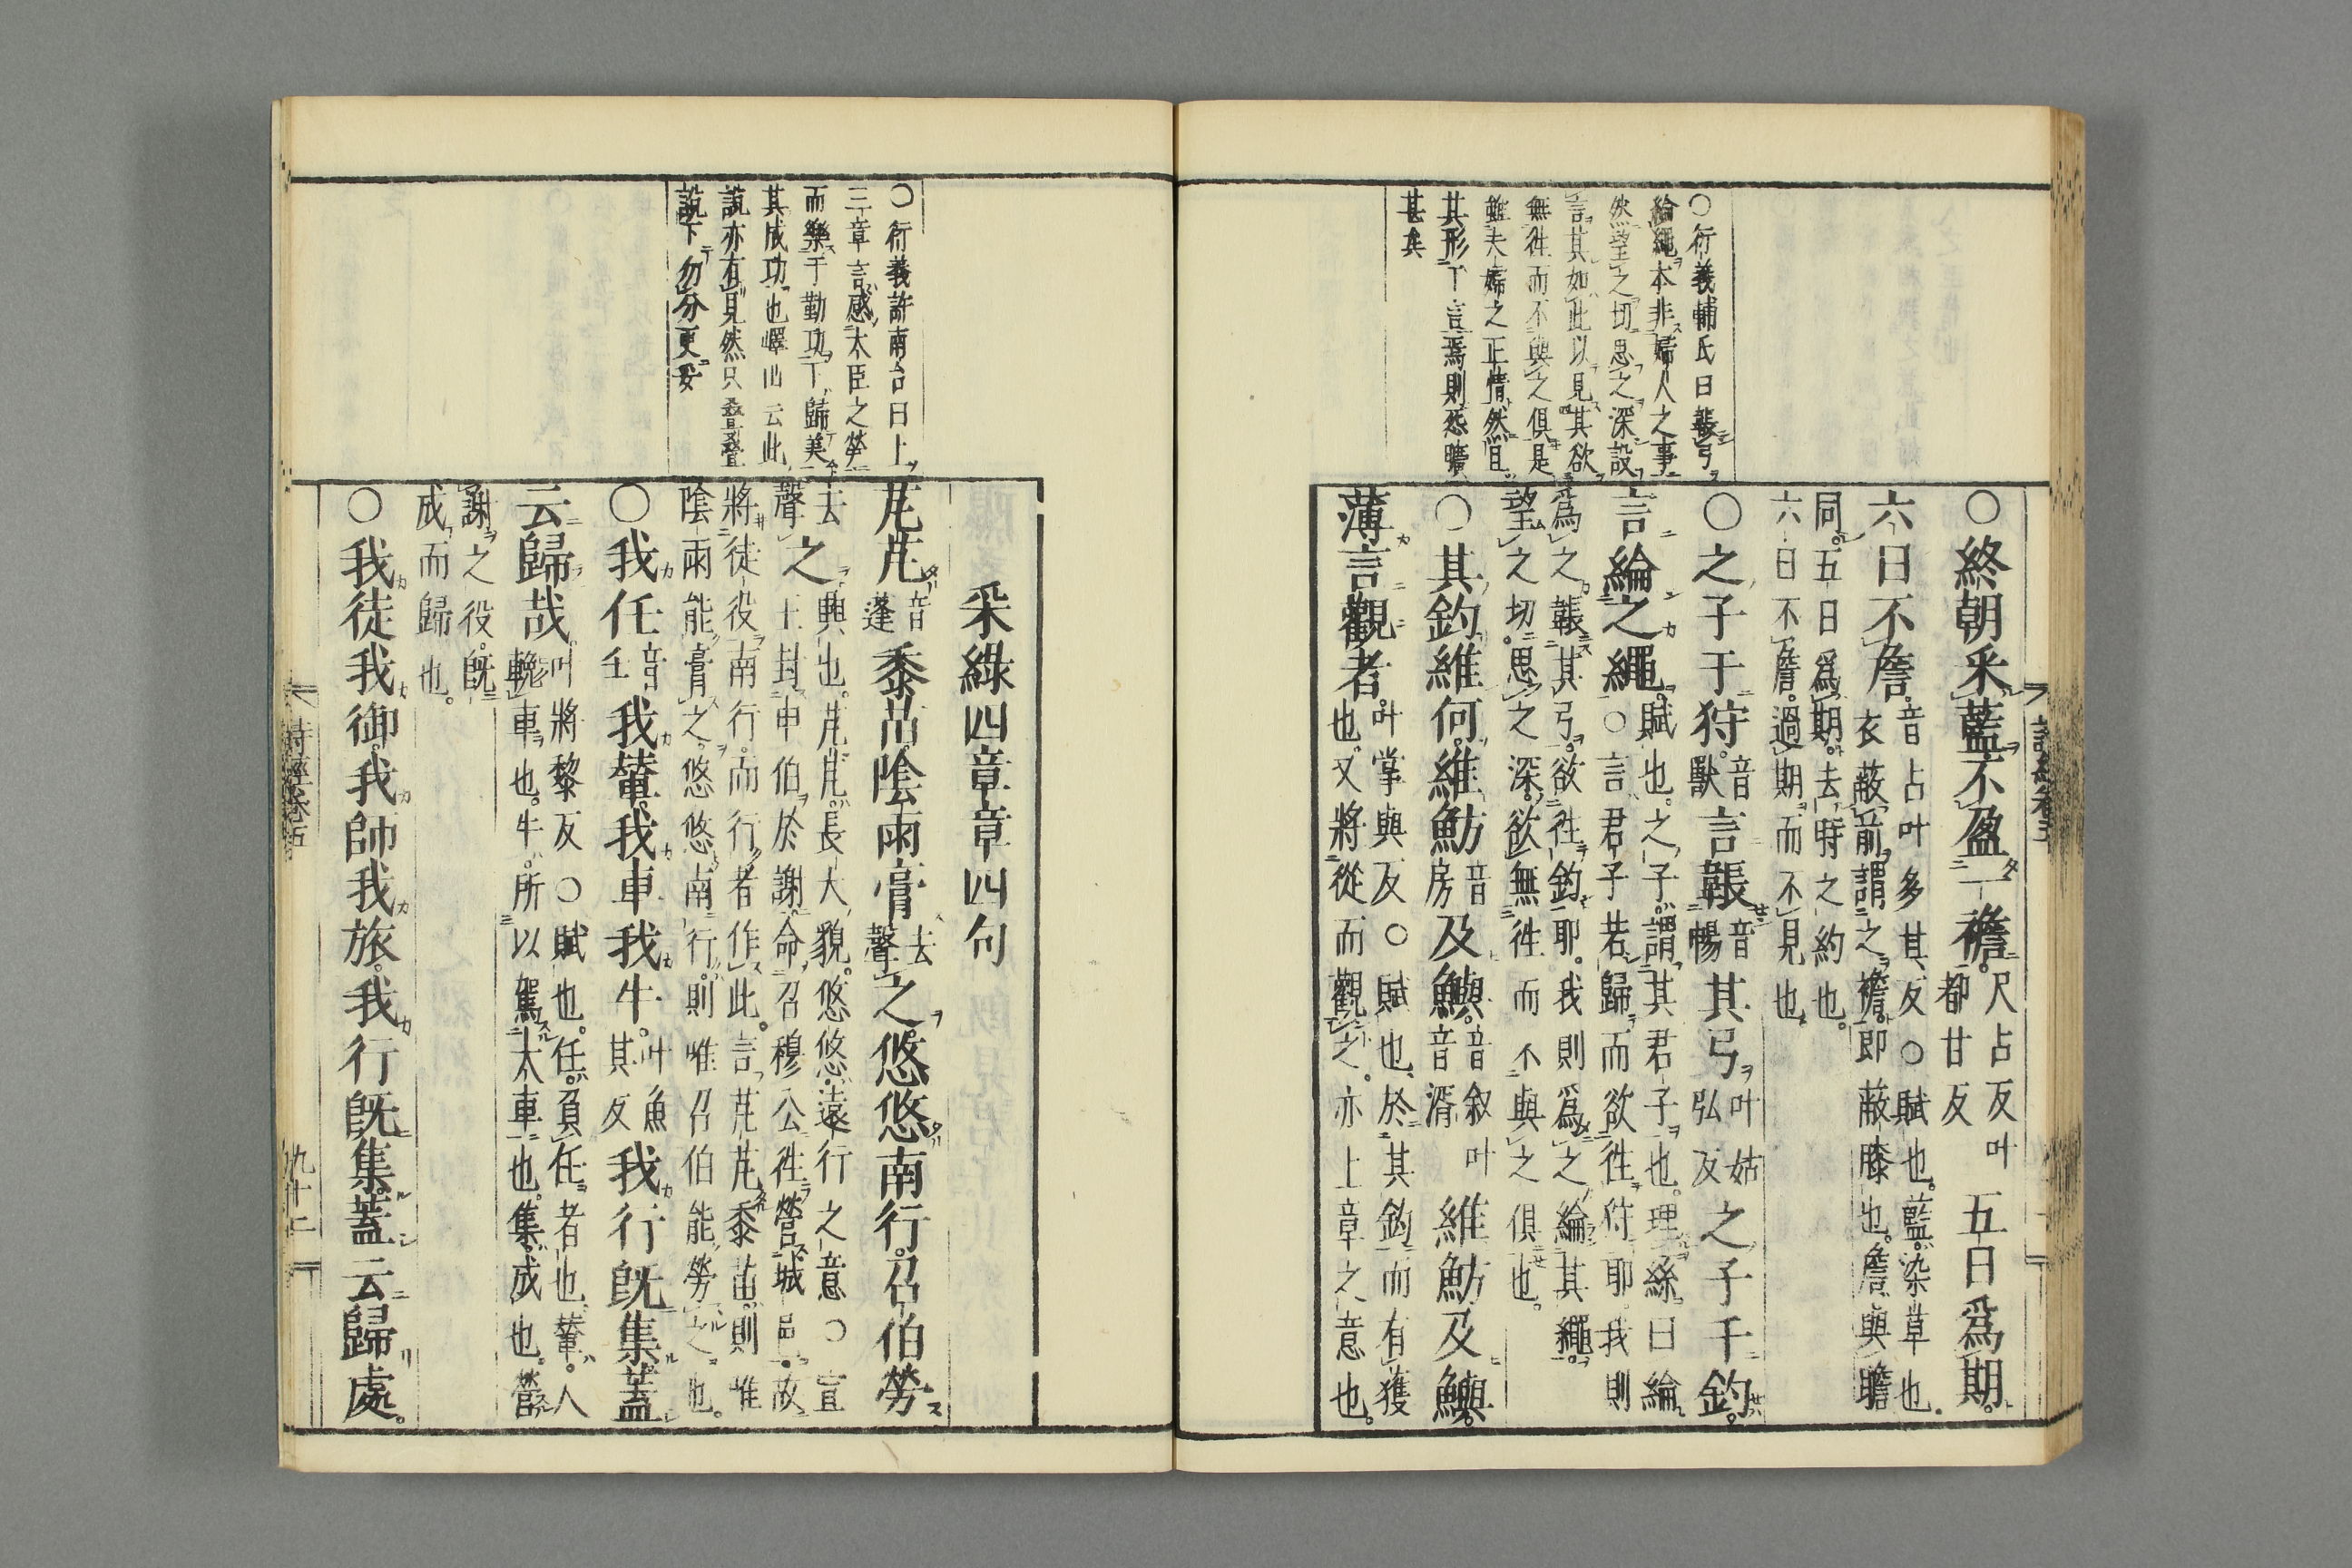 ○衍義輔氏曰韔弓
綸繩本非婦人之事
然望之切思之深設
言其如此以見其欲
無徃而不與之俱是
雖夫婦之正情然且
其形丁言焉則怨曠
甚矣
○終朝采藍不盈一襜尺占反叶都甘反五日爲期
六日不詹音占叶多甘反○賦也藍染草也
衣蔽前謂之襜即蔽膝也詹與瞻
同五日爲期去時之約也
六日不詹過期而不見也
○之子于狩音獸言韔音暢其弓叶姑弘反之子于釣
言綸之繩賦也之子謂其君子也理絲曰綸
○言君子若歸而欲徃狩耶我則
爲之韔其弓欲徃釣耶我則爲之綸其繩
望之切思之深欲無徃而不與之俱也
○其釣維何維魴音房及鱮音叙叶音湑維魴及鱮
薄言觀者叶掌與反○賦也於其釣而有獲
也又將從而觀之亦上章之意也
詩經卷五
○衍義許南台曰上
三章言感太臣之勞
而樂于勤功丁歸美
其成功也嶧山云此
說亦有見然只叠叠
說下勿分更妥
采綠四章章四句
芃芃音蓬黍苗陰雨膏去聲之悠悠南行召伯勞
去聲之興也芃芃長大貌悠悠遠行之意○宣
王封申伯於謝命召穆公徃營城邑故
將徒役南行而行者作此言芃芃黍苗則惟
陰雨能膏之悠悠南行則惟召伯能勞之也
○我任音壬我輦我車我牛叶魚其反我行旣集蓋
云歸哉叶將黎反○賦也任負任者也輦人
輓車也牛所以駕大車也集成也營
謝之役旣
成而歸也
○我徒我御我師我旅我行旣集蓋云歸處
詩經卷五
九十二